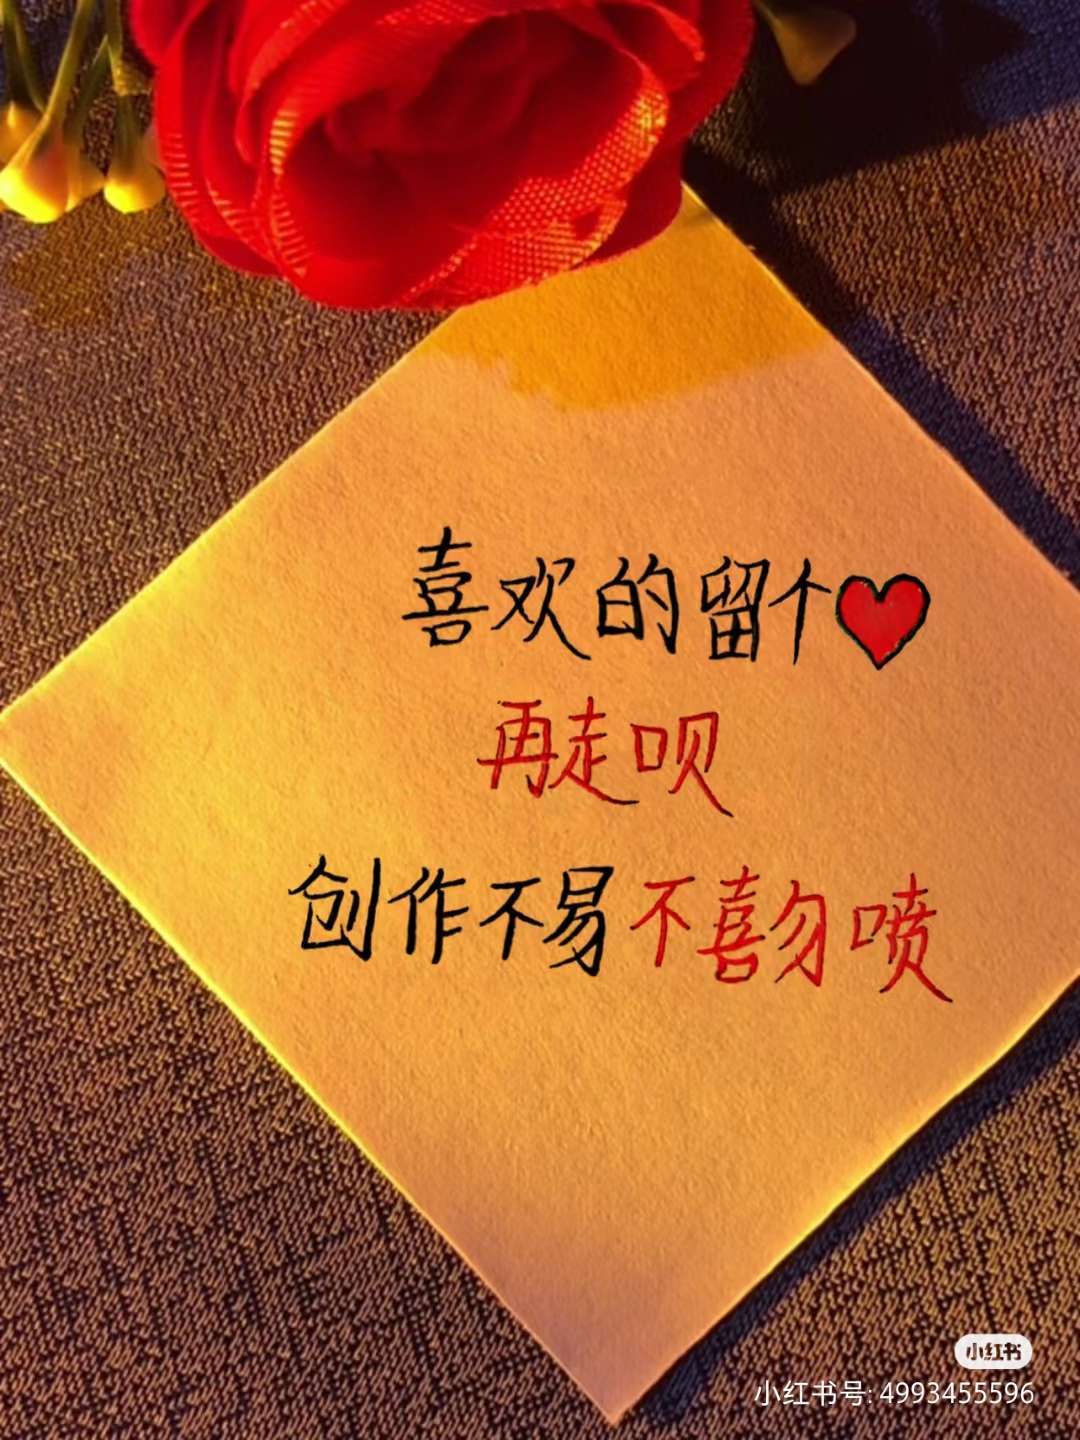 喜欢的留个❤
再走呗
创作不易不喜勿喷
小红书
小红书号: 4993455596